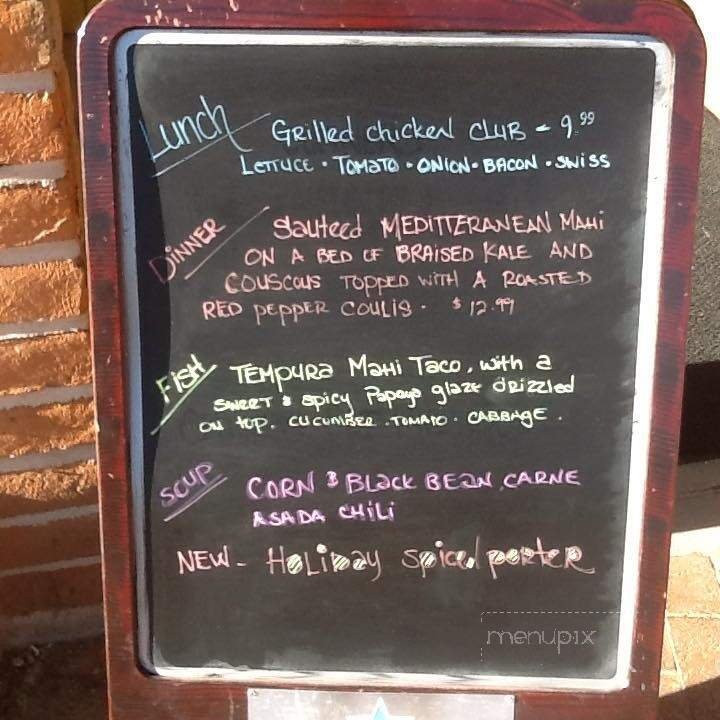 Lunch Grilled chicken CLUB - 9.99
LETTUCE · TOMATO · ONION · BACON · SWISS
DINNER Sauteed MEDITTERANEAN MAHI
ON A BED OF BRAISED KALE AND
COUSCOUS TOPPED WITH A ROASTED
RED PEPPER COULIS. $12.99
FISH TEMPURA MAHI TACO, with a
SWEET & spicy Papaya glaze drizzled
ON top. CUCUMBER . TOMATO . CABBAGE .
SOUP CORN & BLACK BEAN, CARNE
ASADA CHILI
NEW - HOLIDAY Spiced porter
menupix